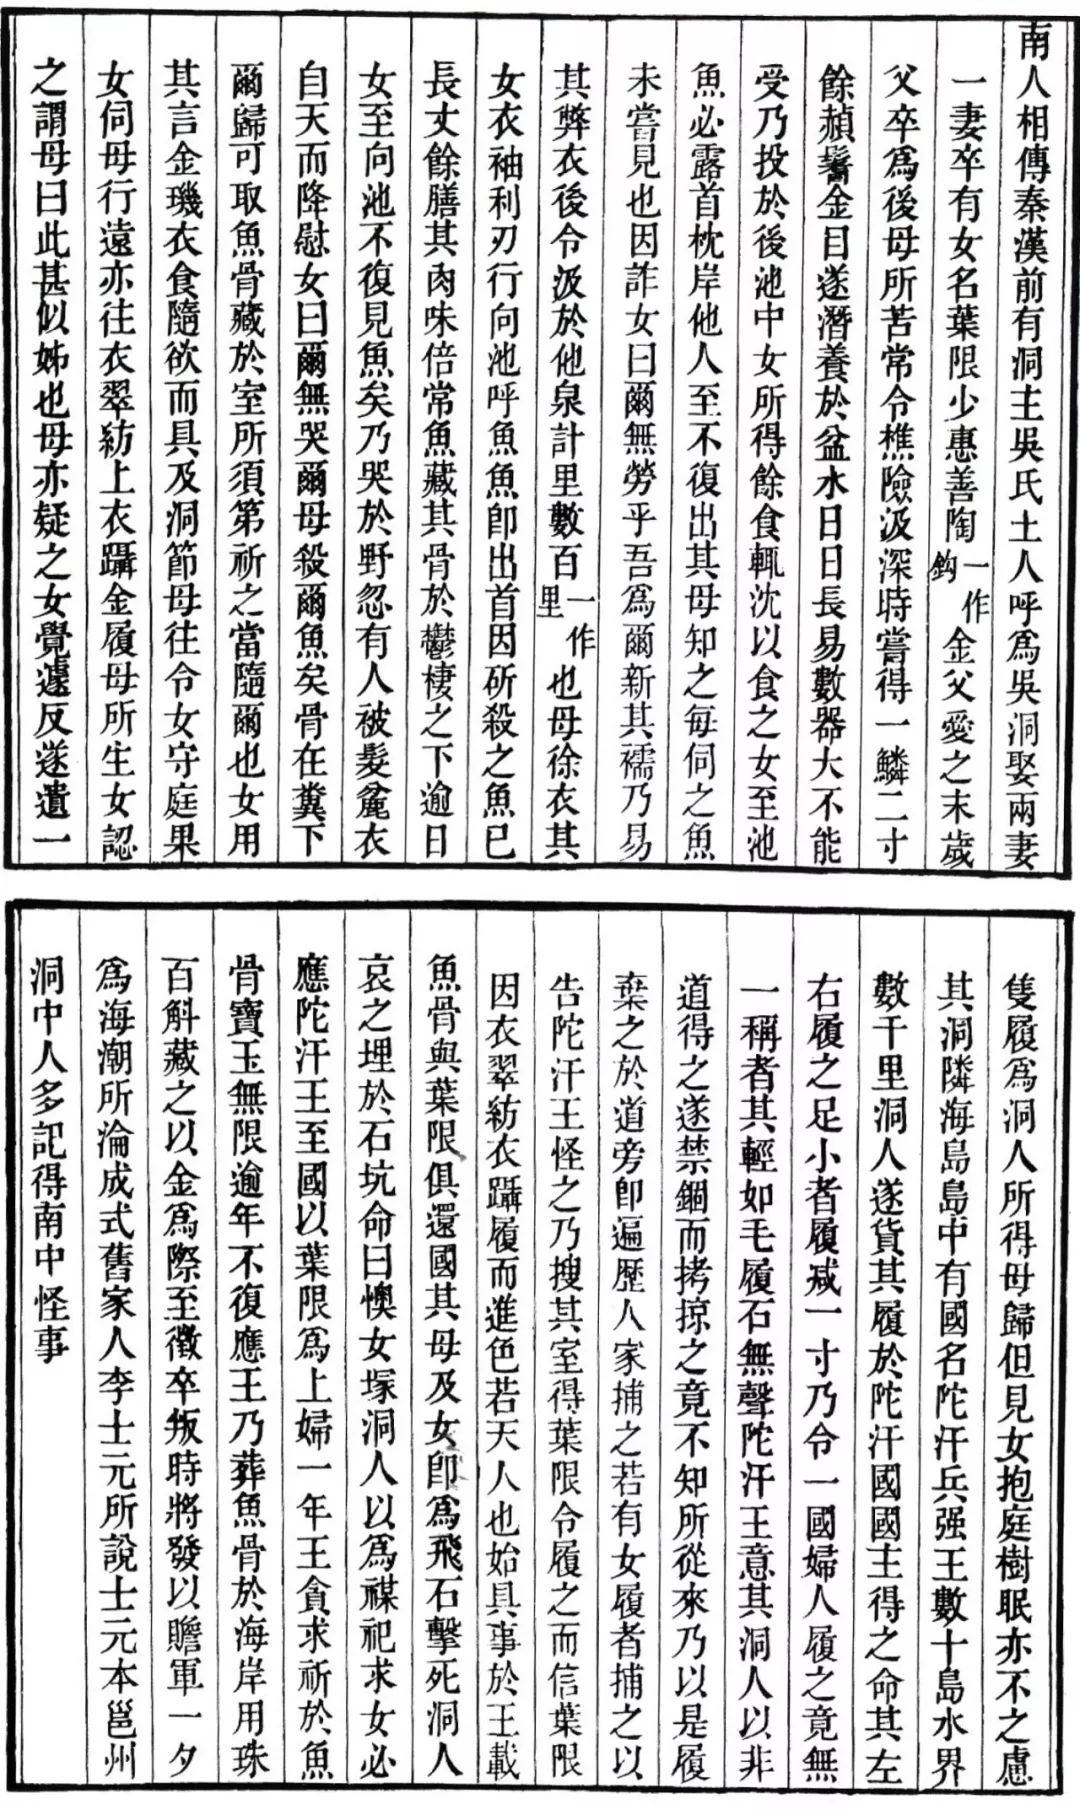 南人相傳秦漢前有洞主吳氏土人呼爲吳洞娶兩妻
一妻卒有女名葉限少惠善陶一作鈎金父愛之末歲
父卒爲後母所苦常令樵險汲深時嘗得一鱗二寸
餘赬鬐金目遂潛養於盆水日日長易數器大不能
受乃投於後池中女所得餘食輒沈以食之女至池
魚必露首枕岸他人至不復出其母知之每伺之魚
未嘗見也因詐女曰爾無勞乎吾爲爾新其襦乃易
其弊衣後令汲於他泉計里數百一作里也母徐衣其
女衣袖利刃行向池呼魚魚即出首因斫殺之魚已
長丈餘膳其肉味倍常魚藏其骨於鬱棲之下逾日
女至向池不復見魚矣乃哭於野忽有人被髮麄衣
自天而降慰女曰爾無哭爾母殺爾魚矣骨在糞下
爾歸可取魚骨藏於室所須第祈之當隨爾也女用
其言金璣衣食隨欲而具及洞節母往令女守庭果
女伺母行遠亦往衣翠紡上衣躡金履母所生女認
之謂母曰此甚似姊也母亦疑之女覺遽反遂遺一
隻履爲洞人所得母歸但見女抱庭樹眠亦不之慮
其洞隣海島島中有國名陀汗兵强王數十島水界
數千里洞人遂貨其履於陀汗國國主得之命其左
右履之足小者履减一寸乃令一國婦人履之竟無
一稱者其輕如毛履石無聲陀汗王意其洞人以非
道得之遂禁錮而拷掠之竟不知所從來乃以是履
棄之於道旁即遍歷人家捕之若有女履者捕之以
告陀汗王怪之乃搜其室得葉限令履之而信葉限
因衣翠紡衣躡履而進色若天人也始具事於王載
魚骨與葉限俱還國其母及女即爲飛石擊死洞人
哀之埋於石坑命曰懊女塚洞人以爲禖祀求女必
應陀汗王至國以葉限爲上婦一年王貪求祈於魚
骨寶玉無限逾年不復應王乃葬魚骨於海岸用珠
百斛藏之以金爲際至徵卒叛時將發以贍軍一夕
爲海潮所淪成式舊家人李士元所說士元本邕州
洞中人多記得南中怪事